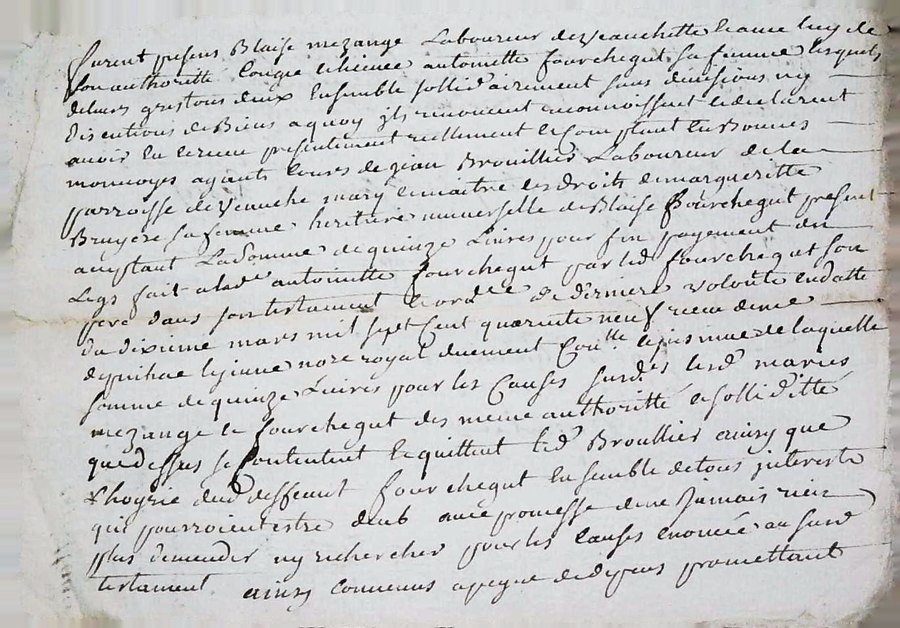 furent presens Blaise mezange Laboureur de veauchette et avec luy de
son authoritté Congé et licence antoinette fourchegut sa femme lesquels
de leurs gres tous deux Ensemble sollidairement sans divisions ny
discutions de Biens a quoy ils renoncent reconnoissent et declarent
avoir eu et receu presentement reellement et Comptant en Bonnes
monnoyes ayants Cours de jean Brouillier Laboureur de la
parroisse de veauche mary et maitre des droits de margueritte
Bruyere sa femme heritiere universelle de Blaise fourchegut present
acceptant La Somme de quinze Livres pour fin payement du
Legs fait a lade antoinette fourchegut par led fourchegut son
pere dans son testament et ordce de derniere volonté en datte
du dixieme mars mil sept Cent quarante neuf receu de me
lejeune nore royal duement Conllé de laquelle
somme de quinze Livres pour les Causes surdes lesd maries
mezange et fourchegut des meme authoritté et solliditté
que dessus se Contentent et quittent led Broullier ainsy que
l'hoyrie dud deffeunt fourchegut Ensemble de tous interests
quil pourroient estre deub avec promesse de ne Jamais rien
plus demander ny rechercher pour les Causes enoncée au surd
testament ainsy Convenus a peyne de depens promettant